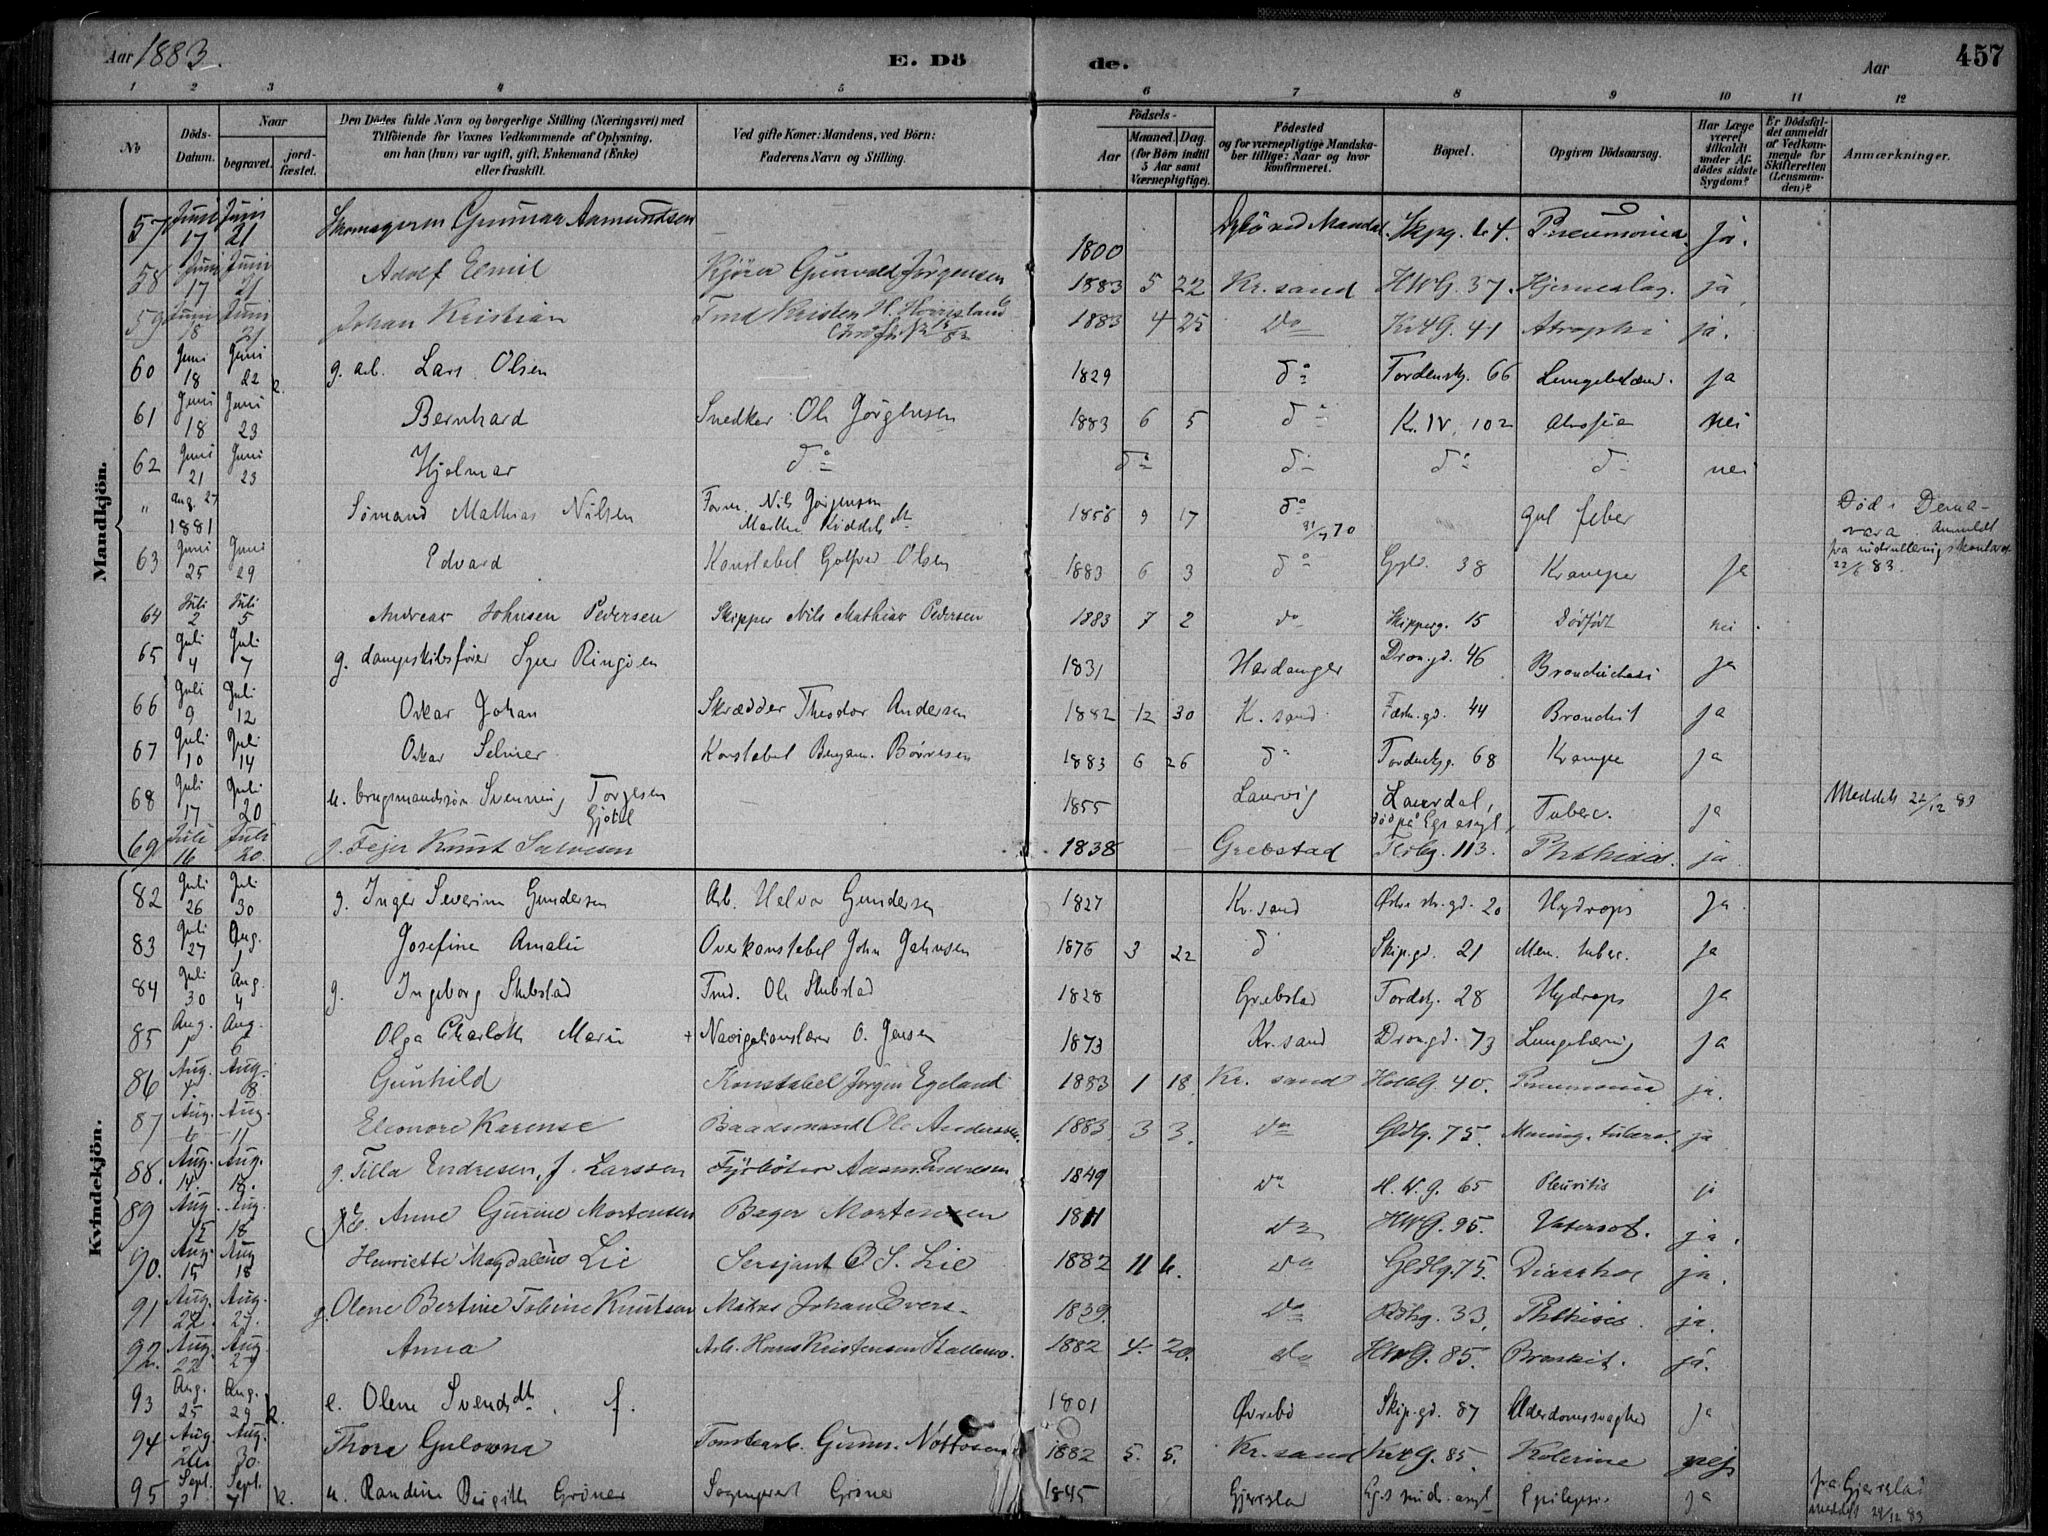 Aar 1883. E. Dö de. Aar 457
1 2 3 4 5 6 7 8 9 10 11 12
No Döds-Datum. Naar begravet. jord-fæstet. Den Dödes fulde Navn og borgerlige Stilling (Næringsvei) med Tilföiende for Voxnes Vedkommende af Oplysning, om han (hun) var ugift, gift, Enkemand (Enke) eller fraskilt. Ved gifte Koner: Mandens, ved Börn: Faderens Navn og Stilling. Födsels- Aar Maaned. Dag. (for Börn indtil 5 Aar samt Værnepligtige). Födested og for værnepligtige Mandskaber tillige: Naar og hvor konfirmeret. Bopæl. Opgiven Dödsaarsag. Har Læge været tilkaldt under Afdödes sidste Sygdom? Er Dödsfaldet anmeldt af Vedkommende for Skifteretten (Lensmanden)? Anmærkninger.
Mandkjön.
57 Juni 17 Juni 21 Skomagerm Gunnar Aamundsen 1800 ved Mandal. Skpg. 64. Pneumonia. ja.
58 Juni 17 Juni 21 Adolf Emil Kjörer Gunvald Jörgensen 1883 5 22 Kr.sand HWG. 37. Hjerneslag. ja
59 Juni 18 Juni 21 Johan Kristian Tmd Kristen H. 1883 4 25 Do KvtG. 41 Atrophi ja.
60 Juni 18 Juni 22 k. g. arb. Lars Olsen 1829 do Tordenskj. 66 Lungebetænd. ja
61 Juni 18 Juni 23 Bernhard Snedker Ole Jörgensen 1883 6 5 do Kr. IV. 102 nei
62 Juni 21 Juni 23 Hjelmar do do do do do nei
" Aug. 27 1881 Sömand Mathias Nilsen Foræ. Nils Jörgensen Marthe 1856 9 17 do gul feber Död i Demavara Anmeldt fra indrulleringskontoret 22/6 83.
63 Juni 25 Juni 29 Edvard Konstabel Olsen 1883 6 3 do 38 Krampe ja
64 Juli 2 Juli 5 Andreas Johnsen Pedersen Skipper Nils Mathias Pedersen 1883 7 2 do Skipperg. 15 Dödfödt nei
65 Juli 4 Juli 7 g. dampskibsförer Ringöen 1831 Hardanger Dron.gd. 46 ja
66 Juli 9 Juli 12 Oskar Johan Skrædder Theodor Andersen 1882 12 30 K. sand Fæstn.gd. 44 Bronchit ja
67 Juli 10 Juli 14 Oskar Selmer Konstabel Benjam. Börresen 1883 6 26 do 68 Krampe ja
68 Juli 17 Juli 20 u. brugsmandssön Svenning Torgesen 1855 Laurvig Laurdal, död på Egs asyl, Tuberc. ja Meddelt 22/12 83
69 Juli 16 Juli 20. g. Fejer Knut Salvesen 1838 Grebstad 113. Phthisis. ja
Kvindekjön.
82 Juli 26 Juli 30 g. Inger Severine Gundersen Arb. Halvor Gundersen 1827 Kr.sand Östre str.gd. 20 Hydrops Ja
83 Juli 27 Aug. 1 Josefine Amalie Overkonstabel John Jahnsen 1876 3 22 d Skip.gd. 21 Men. tuberc. Ja
84 Juli 30 Aug. 4 g. Ingeborg Stubstad Tmd. Ole Stubstad 1828 Grebstad Tordskj. 28 Hydrops Ja
85 Aug. 1 Aug. 6 Olga Charlotte Marie + Navigationslærer O. Jensen 1873 Kr.sand Dron.gd. 73 ja
86 Aug. 4. Aug. 8 Gunhild Konstabel Jörgen Egeland 1883 1 18 Kr. sand HolbG. 40. Pneumonia ja.
87 Aug. 6 Aug. 11 Eleonore Karense Baadsmand Ole Andersen. 1883. 3 3. do Gldlg. 75. Mening. tuberc. ja
88. Aug. 14. Aug. 18. g. Tilla Endresen, f. Larssen Fyrböter Endresen 1849 do H. W. g. 65 Pleuritis ja
89 Aug. 15 Aug. 18 E. Anne Gurine Mortensen Bager Mortensen 1811 do HWG. 95. Vatersot. ja.
90. Aug. 15 Aug 18 Henriette Magdalene Lie Sersjant O S. Lie 1882 11 6. do Gldlg. 75. Diarrhoe ja.
91 Aug. 22. Aug. 27. g. Olene Bertine Tobine Knutsen Johan Evers- 1839. do 33. Phthisis. ja.
92. Aug. 22 Aug. 27 Anna Arb. Hans Kristensen 1882 4. 20. do HWG. 85. Bronkit. ja.
93 Aug. 25 Aug. 29 k. e. Olene Svendsdt. f. 1801 Övrebö Skip.gd. 87 Alderdomssvaghed ja
94 Aug. 26 Aug. 30. Thora Gulowna Tomtearb. Gunn. 1882 5. 5. Kr.sand KvtG. 85. Kolerine nej
95 Sept. Sept. 7 k. u. Randine Birgitte Gröner Sogneprest Gröner 1845 Egs sinds.asyl Epilepsi. ja fra Gjerrstad meddelt 29/12 83